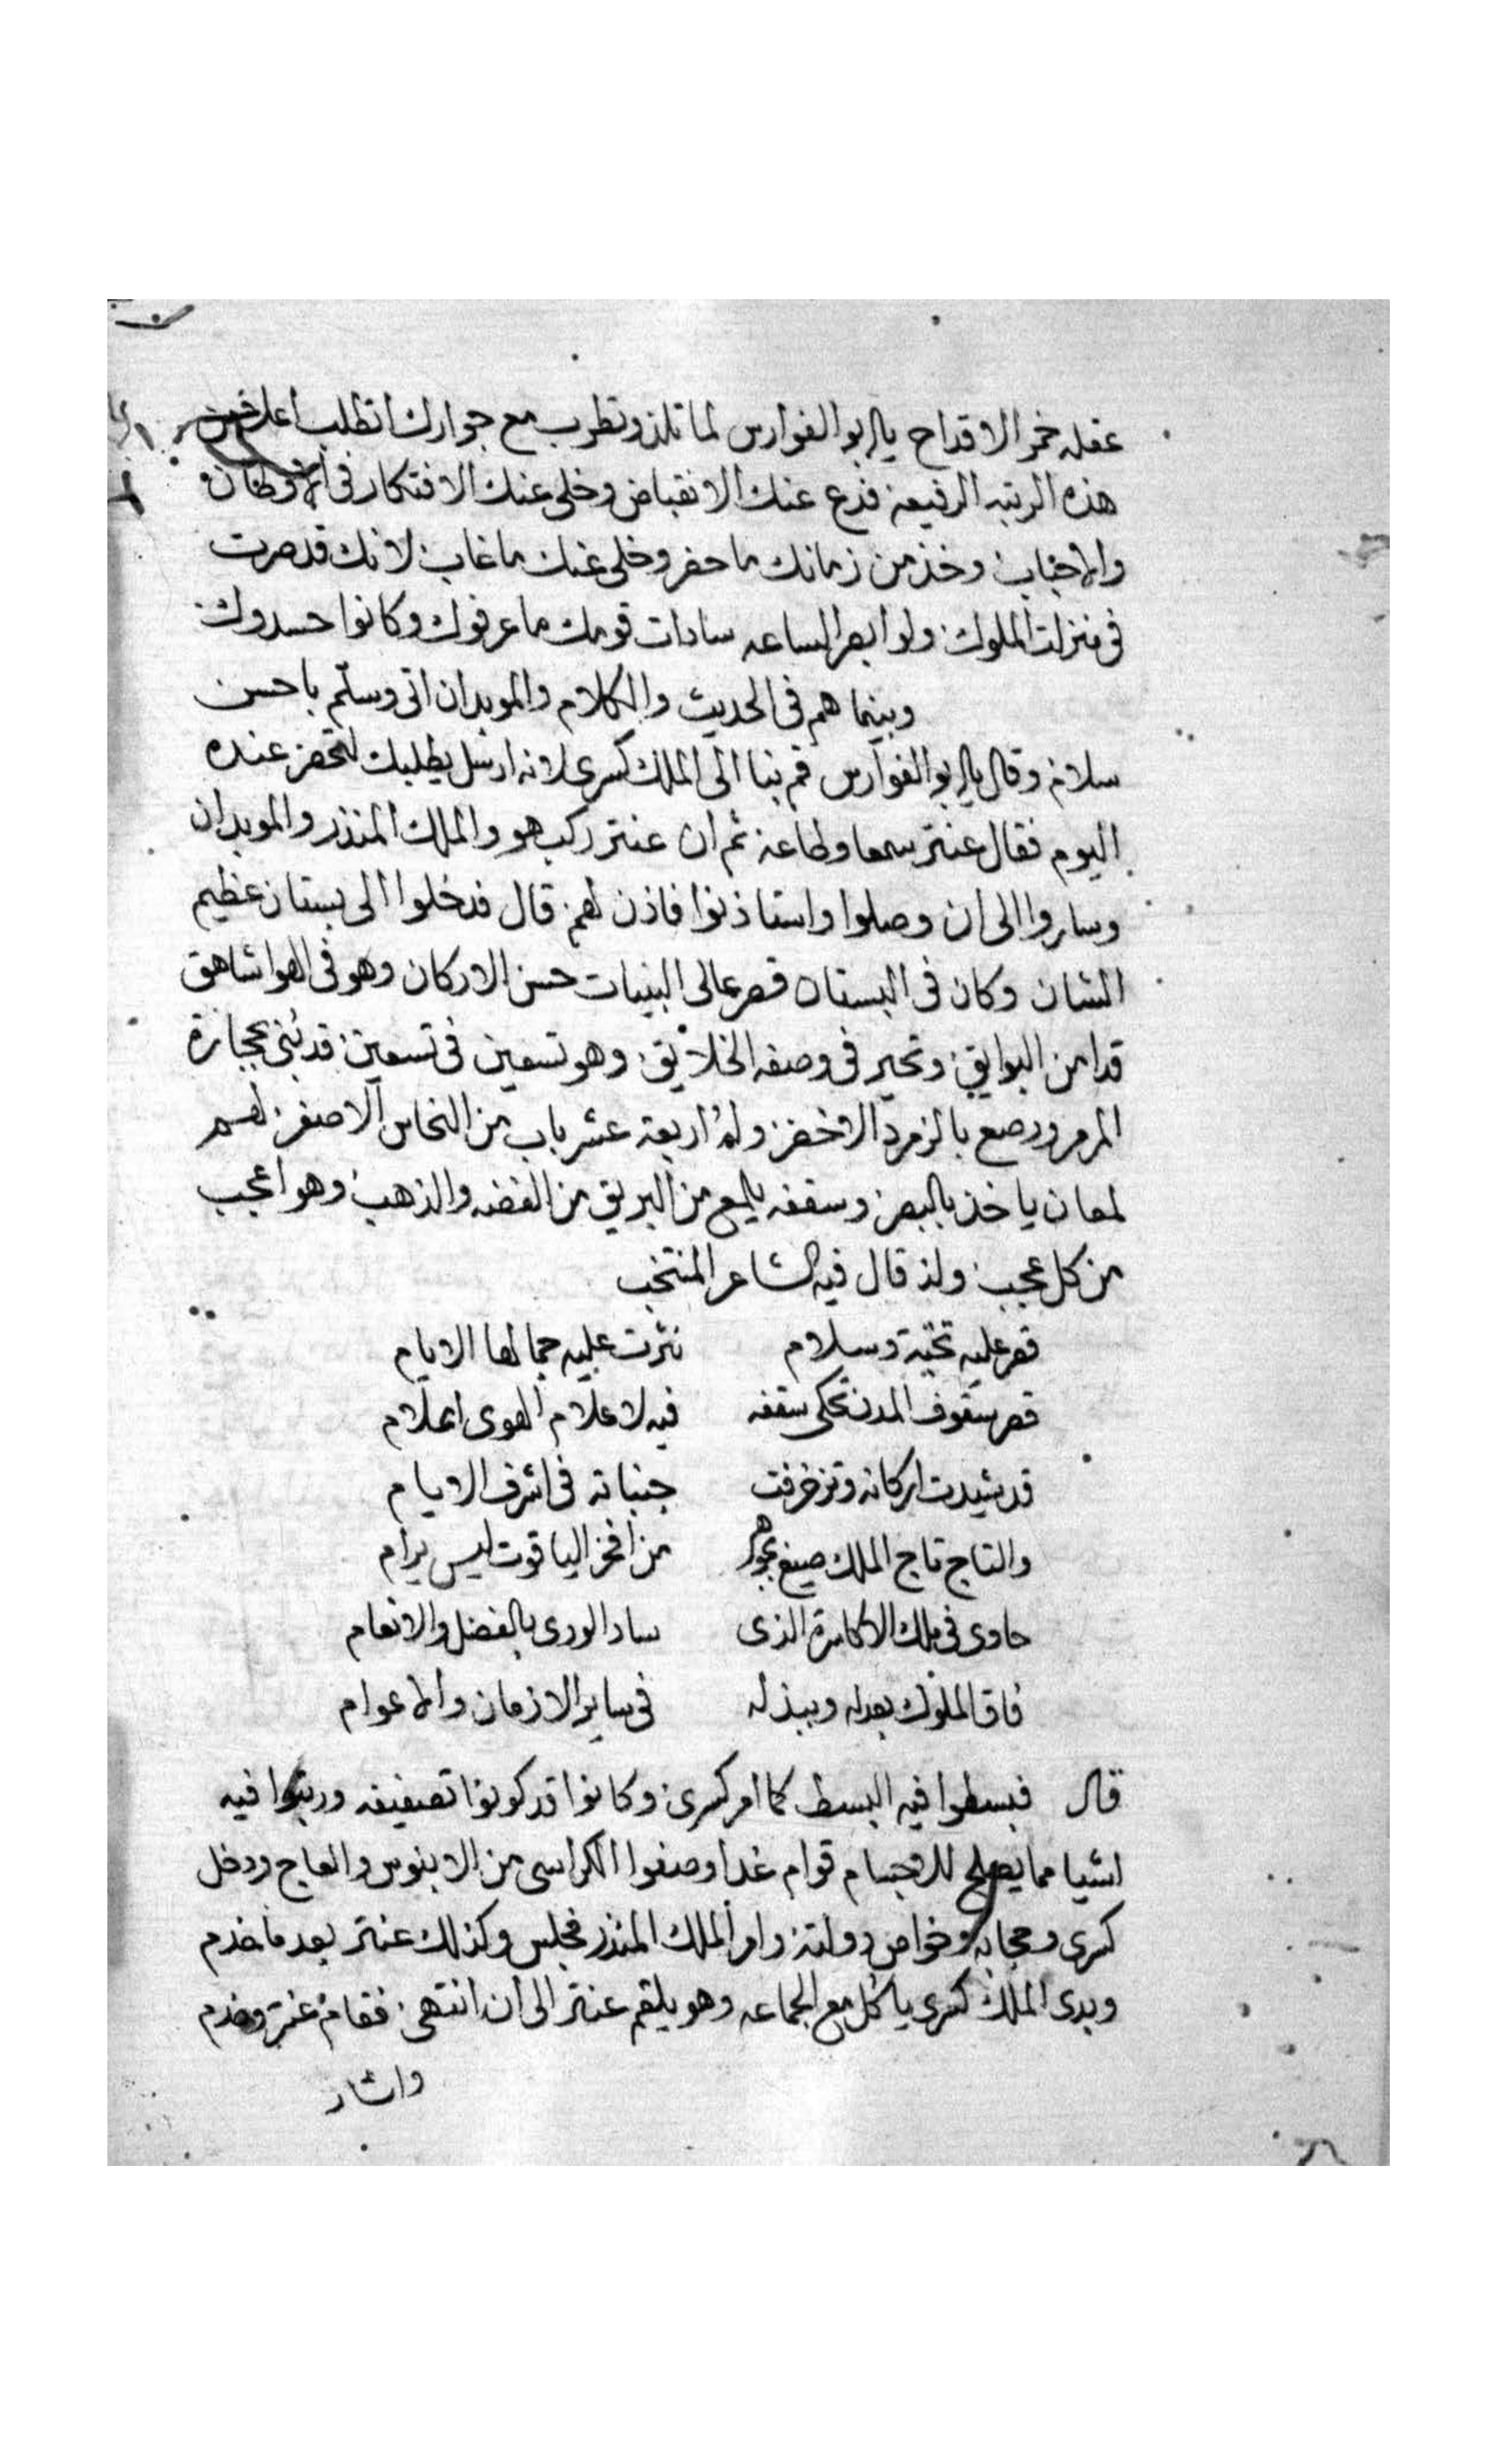 عقله خمر الاقداح يا ابو الفوارس لما تلذ وتطرب مع جوارك اتطلب اعلا من
هذه الرتبه الرفيعة فدع عنك الانقباض وخلى عنك الافتكار فى الاوطان
والاحباب وخذ من زمانك ما حضر وخلى عنك ما غاب لانك قد صرت
فى منزلت الملوك ولو ابصر الساعه سادات قومك ما عرفوك وكانوا حسدوك
وبينما هم فى الحديث والكلام والموبدان اتى وسلّم باحسن
سلام وقال يا ابو الفوارس قم بنا الى الملك كسرى لانه ارسل يطلبك لتحضر عنده
اليوم فقال عنتر سمعا وطاعة ثم ان عنتر ركب هو والملك المنذر والموبدان
وساروا الى ان وصلوا واستاذنوا فاذن لهم قال فدخلوا الى بستان عظيم
الشان وكان فى البستان قصر عالى البنيات حسن الاركان وهو فى الهوا شاهق
قدا من البوايق وتحير فى وصفه الخلايق وهو تسعين فى تسعين قد بُنى بحجارة
المرمر ورصع بالزمرد الاخضر وله اربعة عشر باب من النحاس الاصفر لهم
لمعان ياخذ بالبصر وسقفه يلمع من البريق من الفضه والذهب وهو اعجب
من كل عجب ولذ قال فيه الشاعر المنتخب
قصر عليه تحيّة وسلام نثرت عليه جمالها الايام
قصر سقوف المدن تحكى سقفه فيه لاعلام الهوى اعلام
قد شيدت اركانه وتزخرفت جنباته فى اشرف الايام
والتاج تاج الملك صيغ بجوهر من افخر الياقوت ليس يرام
حاوى فى ملك الاكاسرة الذى ساد الورى بالفضل والانعام
فاق الملوك بعدله وببذله فى ساير الازمان والاعوام
قال فبسطوا فيه البسط كما امر كسرى وكانوا قد كونوا تصفيفه ورتبوا فيه
اشيا مما يصلح للاجسام قوام غدا وصفوا الكراسى من الابنوس والعاج ودخل
كسرى وحجابه وخواص دولته وامر الملك المنذر فجلس وكذلك عنتر بعد ما خدم
وبدى الملك كسرى ياكل مع الجماعه وهو يلقم عنتر الى ان انتهى فقام عنتر وخدم
واشار